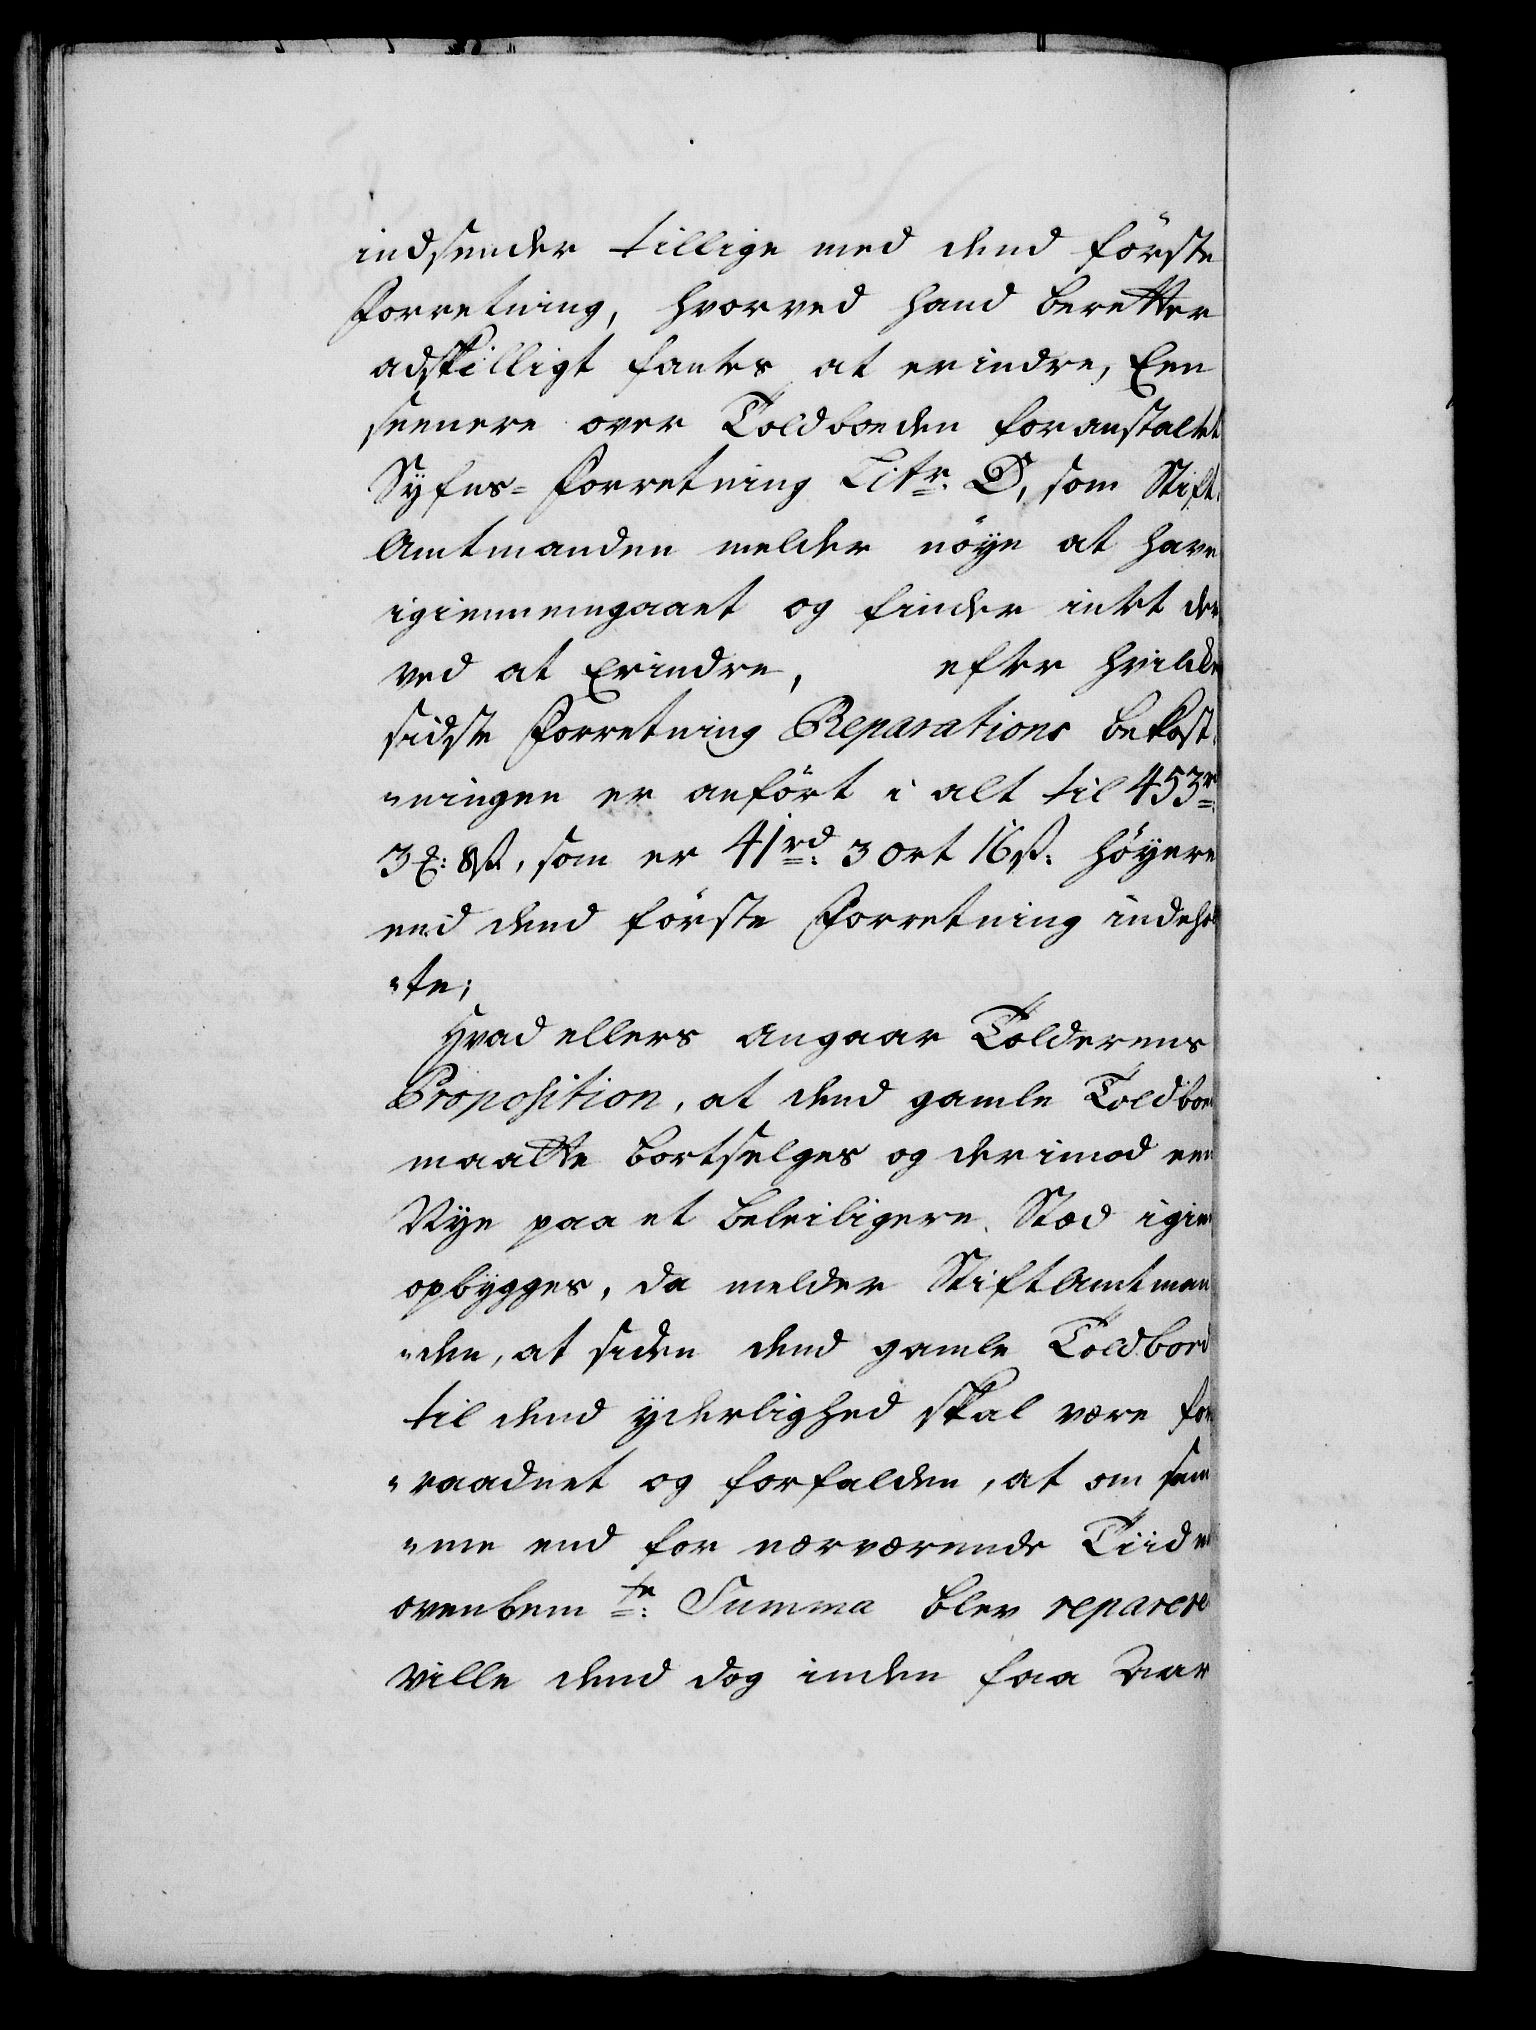 indsender tillige med dend förste
Forretning, hvorved hand beretter
adskilligt fantes at erindre, Een
seenere over Toldboeden foranstaltet
Syfns=Forretning Litr. D, som Stift-
Amtmanden melder nöye at have
igiennemgaaet og finder intet der
ved at Erindre, efter hvilken
sidste Forretning Reparations bekost-
"ningen er anfört i alt til 453 r
3 : 8 s., som er 41 rd. 3 ort 16 s. höyere
end dend förste Forretning indehol
"te;
Hvad ellers angaar Tolderens
Proposition, at dend gamle Toldboe
maatte bortselges og derimod een
Nye paa et beleiligere Stæd igien
opbygges, da melder StiftAmtman
"den, at siden dend gamle Toldbod
til dend yderlighed skal være for
"raadnet og forfalden, at om sam
"me end for nærværende Tiid
ovenbem te: Summa blev reparere
ville dend dog inden faa Aar